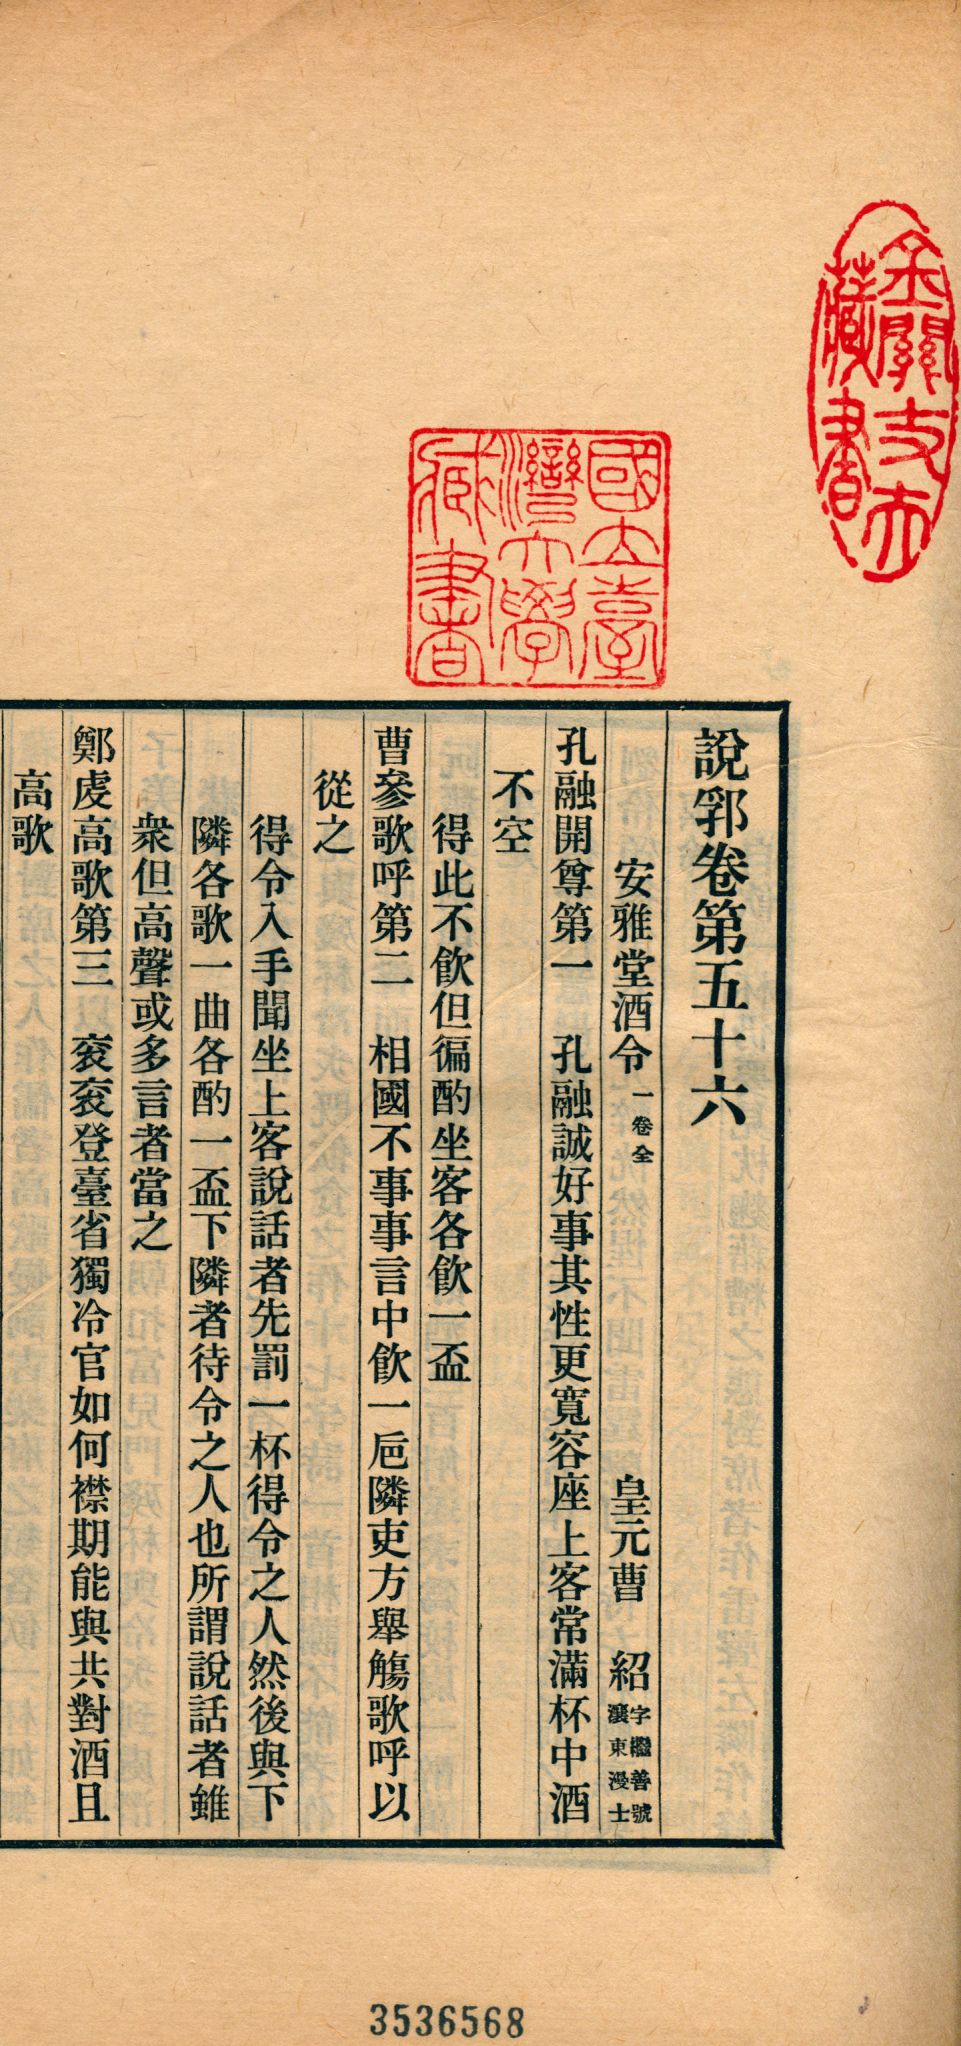 說郛卷第五十六
安雅堂酒令 一卷全 皇元曹 紹 字繼善號瀼東漫士
孔融開尊第一 孔融誠好事其性更寬容座上客常滿杯中酒
不空
得此不飲但徧酌坐客各飲一盃
曹參歌呼第二 相國不事事言中飲一巵隣吏方舉觴歌呼以
從之
得令入手聞坐上客說話者先罰一杯得令之人然後與下
隣各歌一曲各酌一盃下隣者待令之人也所謂說話者雖
衆但高聲或多言者當之
鄭虔高歌第三 衮衮登臺省獨冷官如何襟期能與共對酒且
高歌
國立臺
灣大學
藏書
藏書
3536568